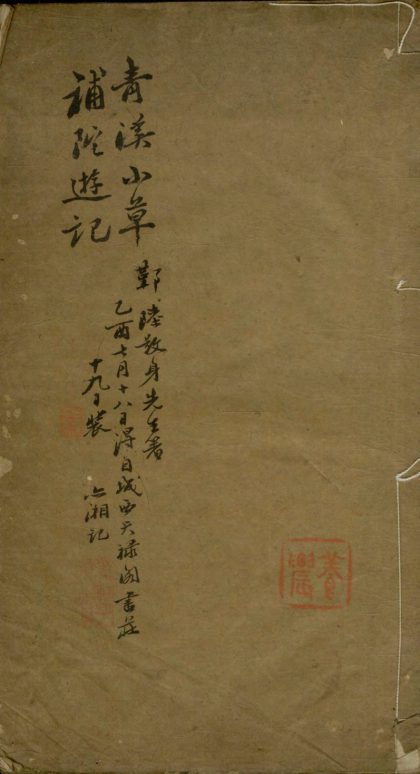 青溪小草
補陀遊記
鄞陸敬身先生著
乙酉七月十八日得自城西天祿閣書莊
十九日裝 湘記